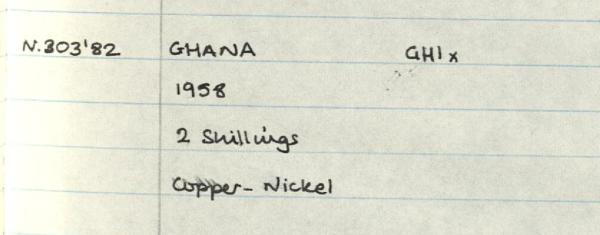 N.303'82 GHANA GH1x
1958
2 Shillings
Copper-Nickel